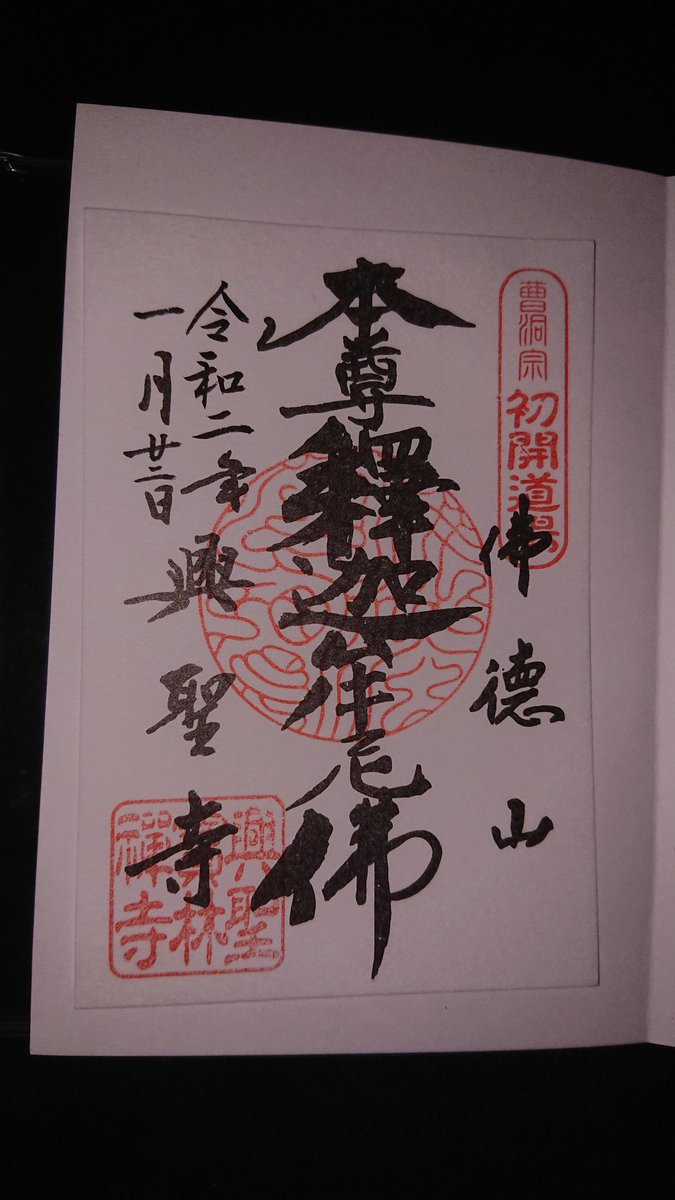 曹洞宗
初開道場
佛德山
本尊釋迦牟尼佛
令和二年
一月
興聖寺
興聖
寶林
禪寺